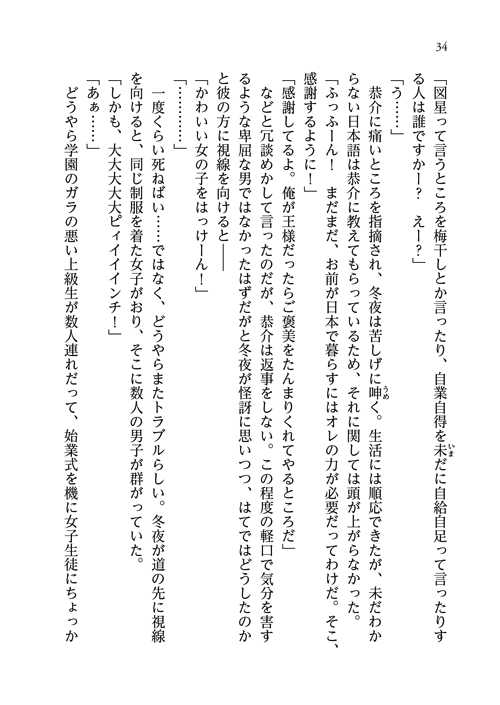 34
「図星って言うところを梅干しとか言ったり、自業自得を未だに自給自足って言ったりす
る人は誰ですかー？　えー？」
「う……」
恭介に痛いところを指摘され、冬夜は苦しげに呻く。生活には順応できたが、未だわか
らない日本語は恭介に教えてもらっているため、それに関しては頭が上がらなかった。
「ふっふーん！　まだまだ、お前が日本で暮らすにはオレの力が必要だってわけだ。そこ、
感謝するように！」
「感謝してるよ。俺が王様だったらご褒美をたんまりくれてやるところだ」
などと冗談めかして言ったのだが、恭介は返事をしない。この程度の軽口で気分を害す
るような卑屈な男ではなかったはずだがと冬夜が怪訝に思いつつ、はてではどうしたのか
と彼の方に視線を向けると――
「かわいい女の子をはっけーん！」
「…………」
一度くらい死ねばい……ではなく、どうやらまたトラブルらしい。冬夜が道の先に視線
を向けると、同じ制服を着た女子がおり、そこに数人の男子が群がっていた。
「しかも、大大大大大ピィイイインチ！」
「あぁ……」
どうやら学園のガラの悪い上級生が数人連れだって、始業式を機に女子生徒にちょっか